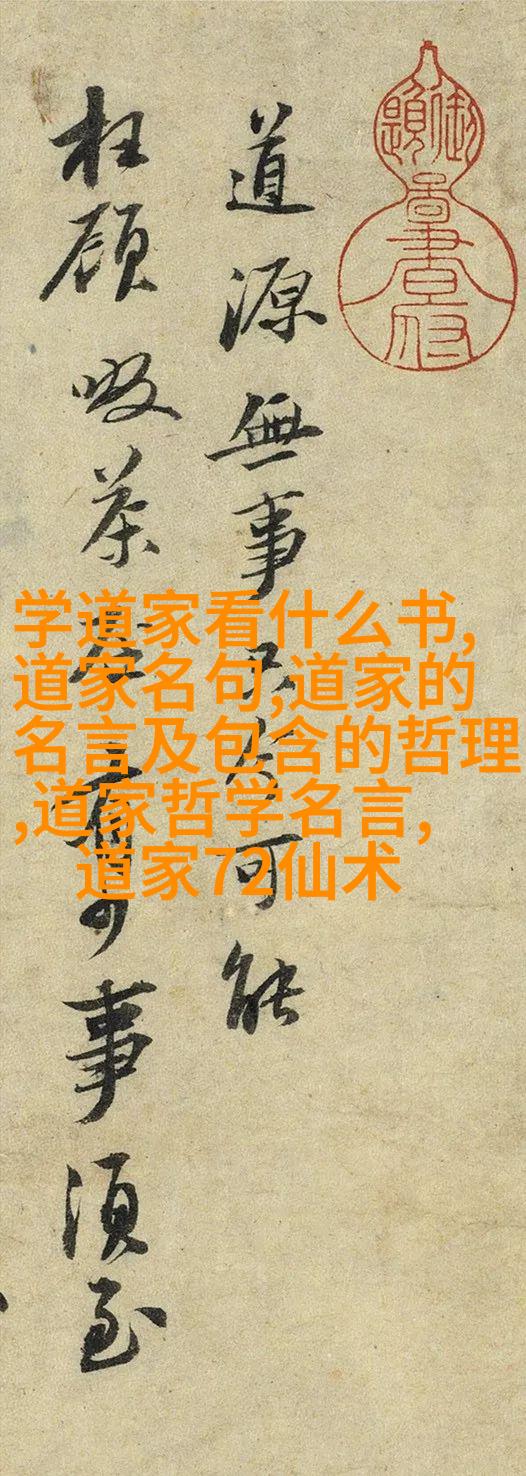 道源無事只今可能
枉顧啜茶否有少事須至
御題
学道家看什么书,
道家名句,道家的
名言及包含的哲理
,道家哲学名言,
道家72仙术